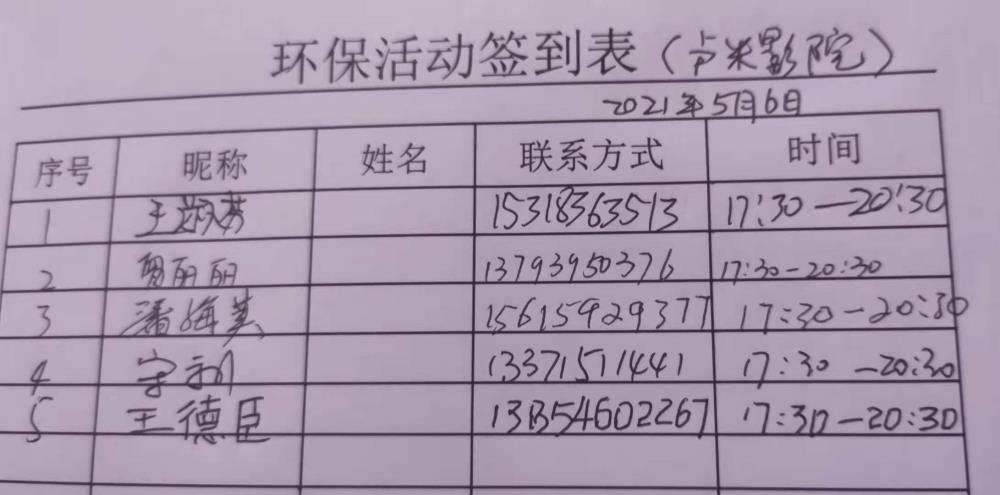 环保活动签到表（卢米影院）
2021年5月6日
序号 昵称 姓名 联系方式 时间
1 王淑芬 15318363513 17:30—20:30
2 贾丽丽 13793950376 17:30-20:30
3 潘梅美 15615929377 17:30-20:30
4 宋 13371511441 17:30-20:30
5 王德臣 13854602267 17:30-20:30